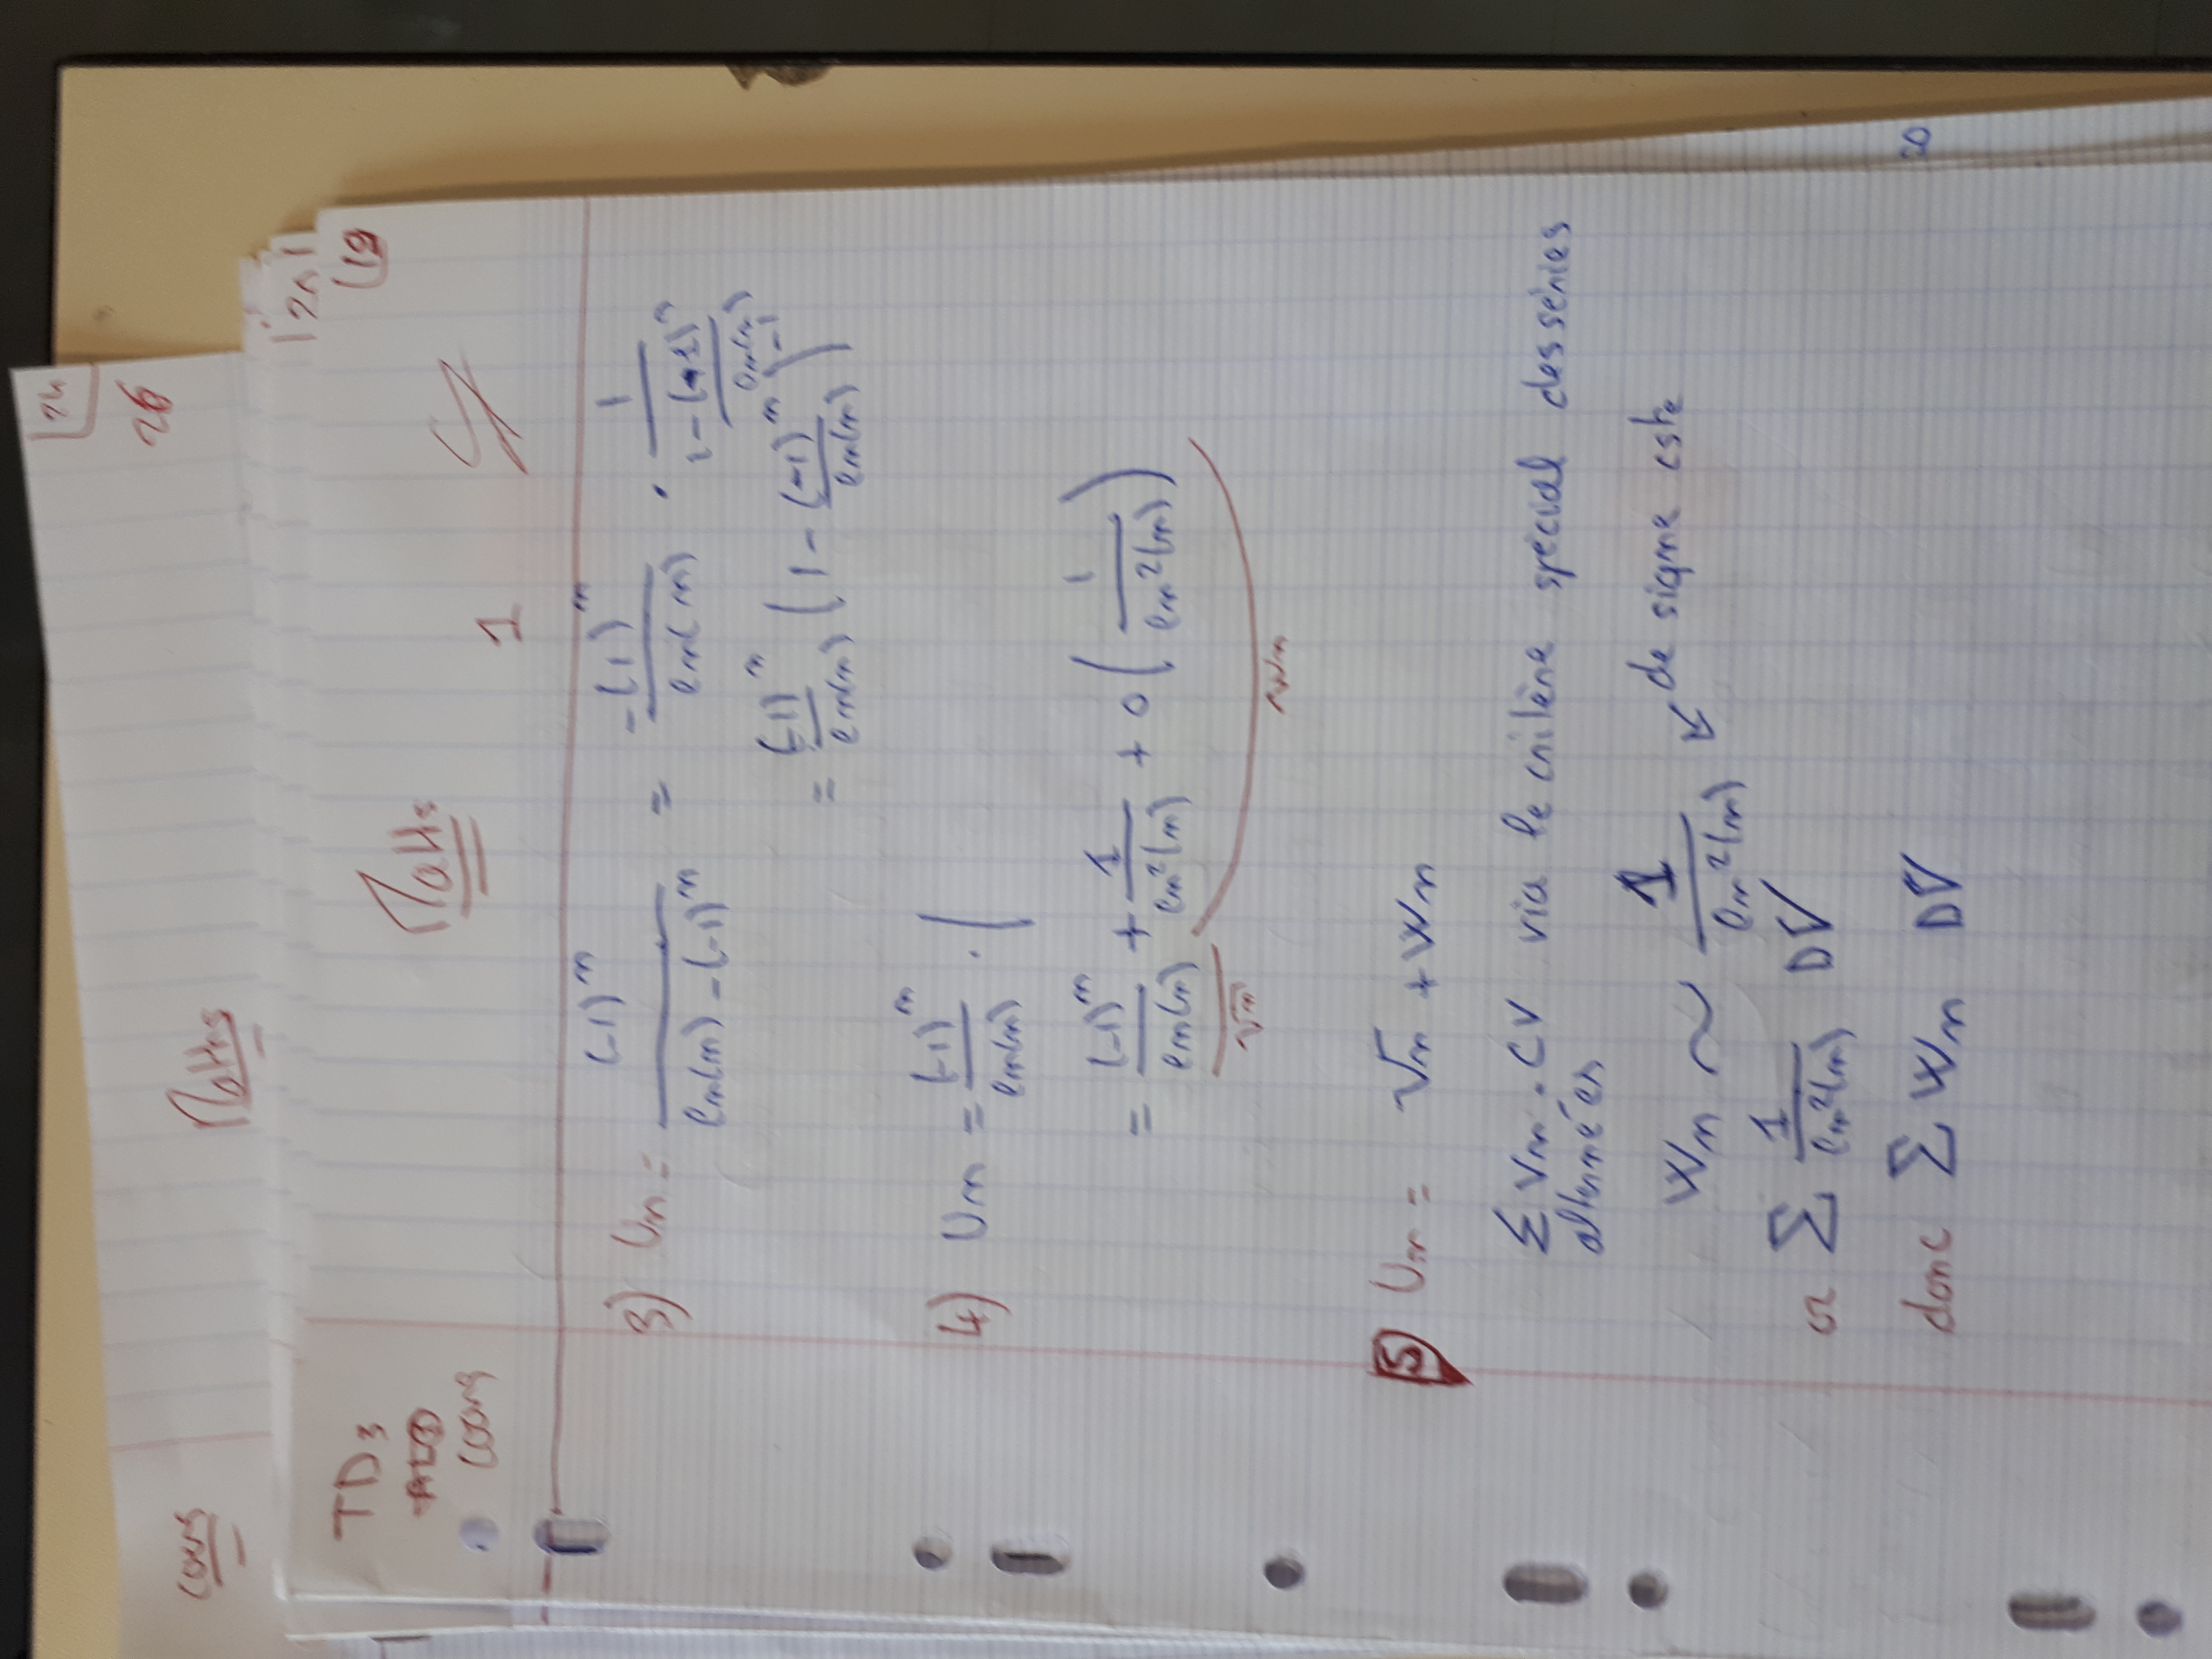 24
Cours Maths 26
21
TD3 Maths 19
Cours 1
3) Un = (-1)^n / (ln(n) - (-1)^n) = -(-1)^n / ln(n) · 1 / (1 - (-1)^n / ln(n))
= (-1)^n / ln(n) (1 - (-1)^n / ln(n))^-1
4) Un = (-1)^n / ln(n) · (
= (-1)^n / ln(n) + 1 / ln²(n) + o(1 / ln²(n))
Vn Wn
5) Un = Vn + Wn
Σ Vn · CV via le critère spécial des séries
alternées
Wn ~ 1 / ln²(n) ↙ de signe cste
or Σ 1 / ln²(n) DV
donc Σ Wn DV
20